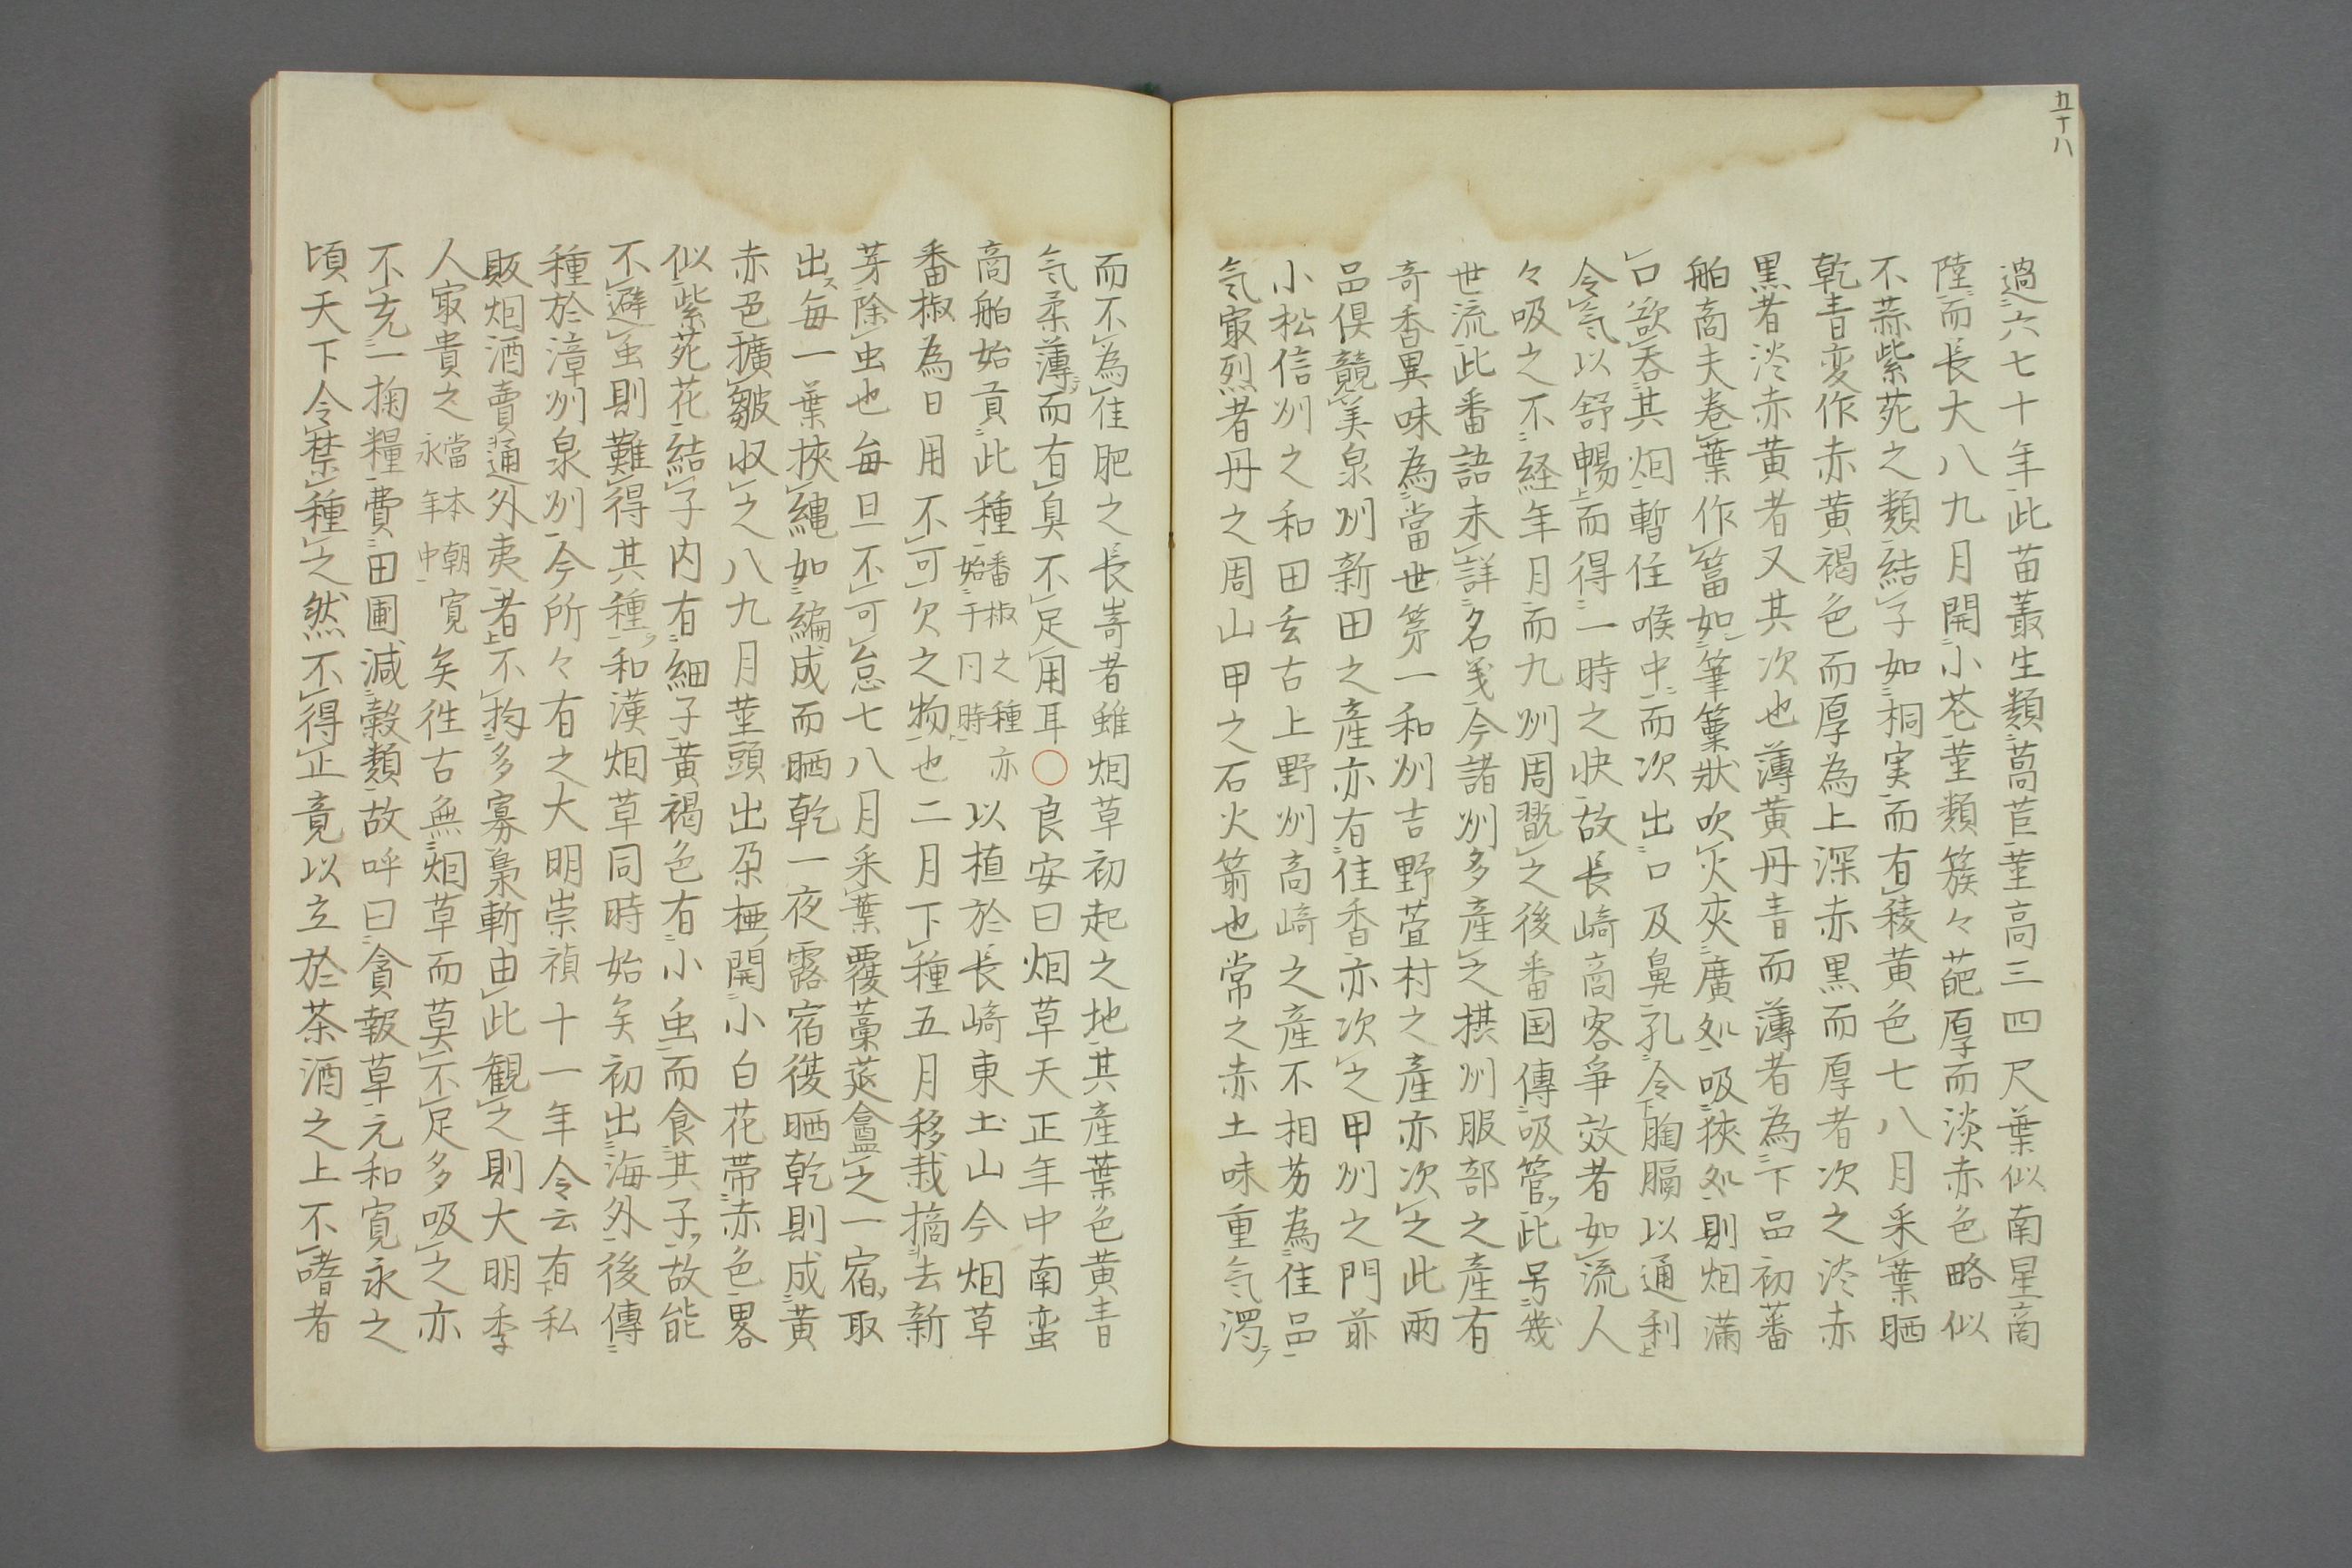 五十八
過六七十年此苗叢生類萵苣莖高三四尺葉似南星商
陸而長大八九月開小花莖類簇々葩厚而淡赤色略似
不蒜紫菀之類結子如桐実而有稜黄色七八月采葉晒
乾青変作赤黄褐色而厚為上深赤黒而厚者次之淡赤
黒者淡赤黄者又其次也薄黄丹青而薄者為下品初蕃
舶商夫卷葉作筩如筆篥狀吹火夾廣処吸狹処則烟滿
口欲呑其烟暫住喉中而次出口及鼻孔令胸膈以通利
令気以舒暢而得一時之快故長崎商客争效者如流人
々吸之不経年月而九州周翫之後番国傳吸管此号幾
世流此番語未詳名義今諸州多產之摂州服部之產有
奇香異味為當世第一和州吉野萱村之產亦次之此兩
品俱競美泉州新田之產亦有佳香亦次之甲州之門前
小松信州之和田玄古上野州高崎之產不相劣為佳品
気寂烈者丹之周山甲之石火箭也常之赤土味重気濁
而不為佳肥之長嵜者雖烟草初起之地其產葉色黄青
気柔薄而有臭不足用耳〇良安曰烟草天正年中南蛮
商舶始貢此種番椒之種亦始于同時以植於長崎東土山今烟草
番椒為日用不可欠之物也二月下種五月移栽摘去新
芽除虫也毎旦不可怠七八月采葉覆藁莚盦之一宿取
出毎一葉挾縄如編成而晒乾一夜露宿復晒乾則成黄
赤色擴皺収之八九月莖頭出朶椏開小白花帯赤色畧
似紫菀花結子内有細子黄褐色有小虫而食其子故能
不避虫則難得其種和漢烟草同時始矣初出海外後傳
種於漳州泉州今所々有之大明崇禎十一年令云有私
販烟酒賣通外夷者不拘多寡梟斬由此観之則大明季
人寂貴之當本朝寛永年中矣往古無烟草而莫不足多吸之亦
不充一掬糧費田圃減穀類故呼曰貪報草元和寛永之
頃天下令禁種之然不得止竟以立於茶酒之上不嗜者